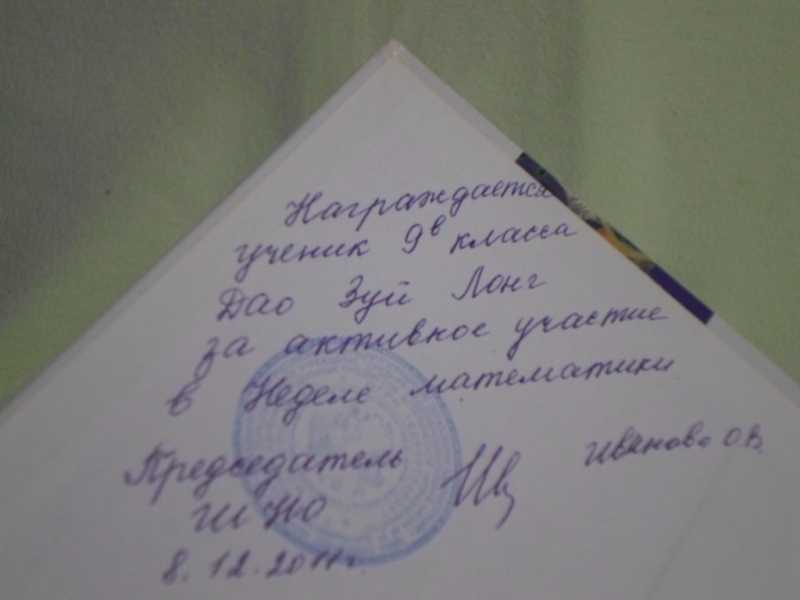 Награждается
ученик 9в класса
Дао Зуй Лонг
за активное участие
в Неделе математики
Председатель
ШНО
Иванова О.В.
8.12.2011г.